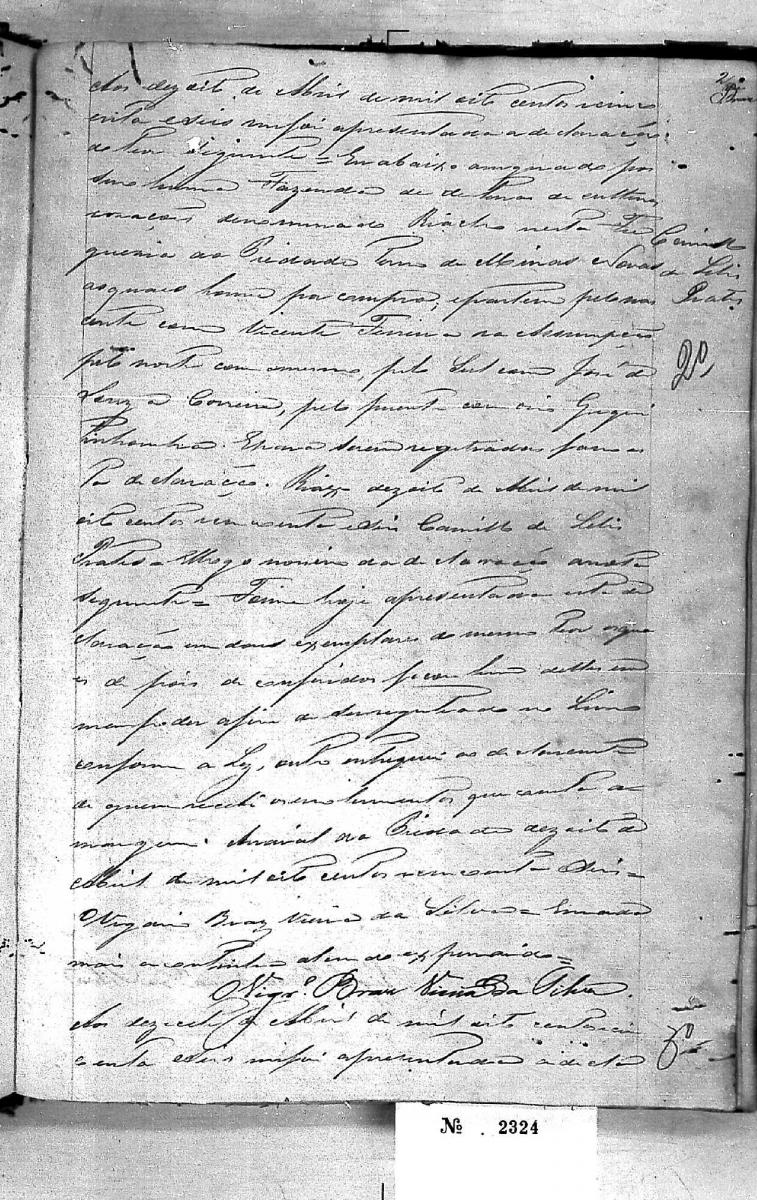 Aos dezoito de Abril de mil oito centos cinco
enta e seis me foi apresentada a declaração
do teor seguinte = Eu abaixo assignado pos
suo huma Fazenda de terras de cultura
denominada Riacho nesta Fre
guesia da Piedade Termo de Minas Novas
as quaes houve por compra, e partem pelo nas
cente com Vicente Ferreira da Assumpção
pelo norte com o mesmo, pelo Sul com José de
Souza Correia, pelo poente com
E para serem registradas faço es
ta declaração. dezoito de Abril de mil
oito centos cincoenta e seis Camillo de Lelis
Prates = declaração
seguinte = Foi me hoje apresentada esta de
claração em dous exemplares do mesmo teor os qua
es depois de conferidos ficou hum delles em
meu poder afim de ser registrado no Livro
conforme a Ley, outro entreguei ao declarante
de quem recebi os emolumentos que consta a
margem. Arraial da Piedade dezoito de
Abril de mil oito centos cincoenta e seis =
Vigario Braz Vieira da Silva = E nada
mais continha alem do expendido =
O Vigr.º Braz Vieira da Silva.
Aos dezoito de Abril de mil oito centos cin
coenta e seis me foi apresentada a decla
2
Camillo
de Lelis
Prates
Nº 2324